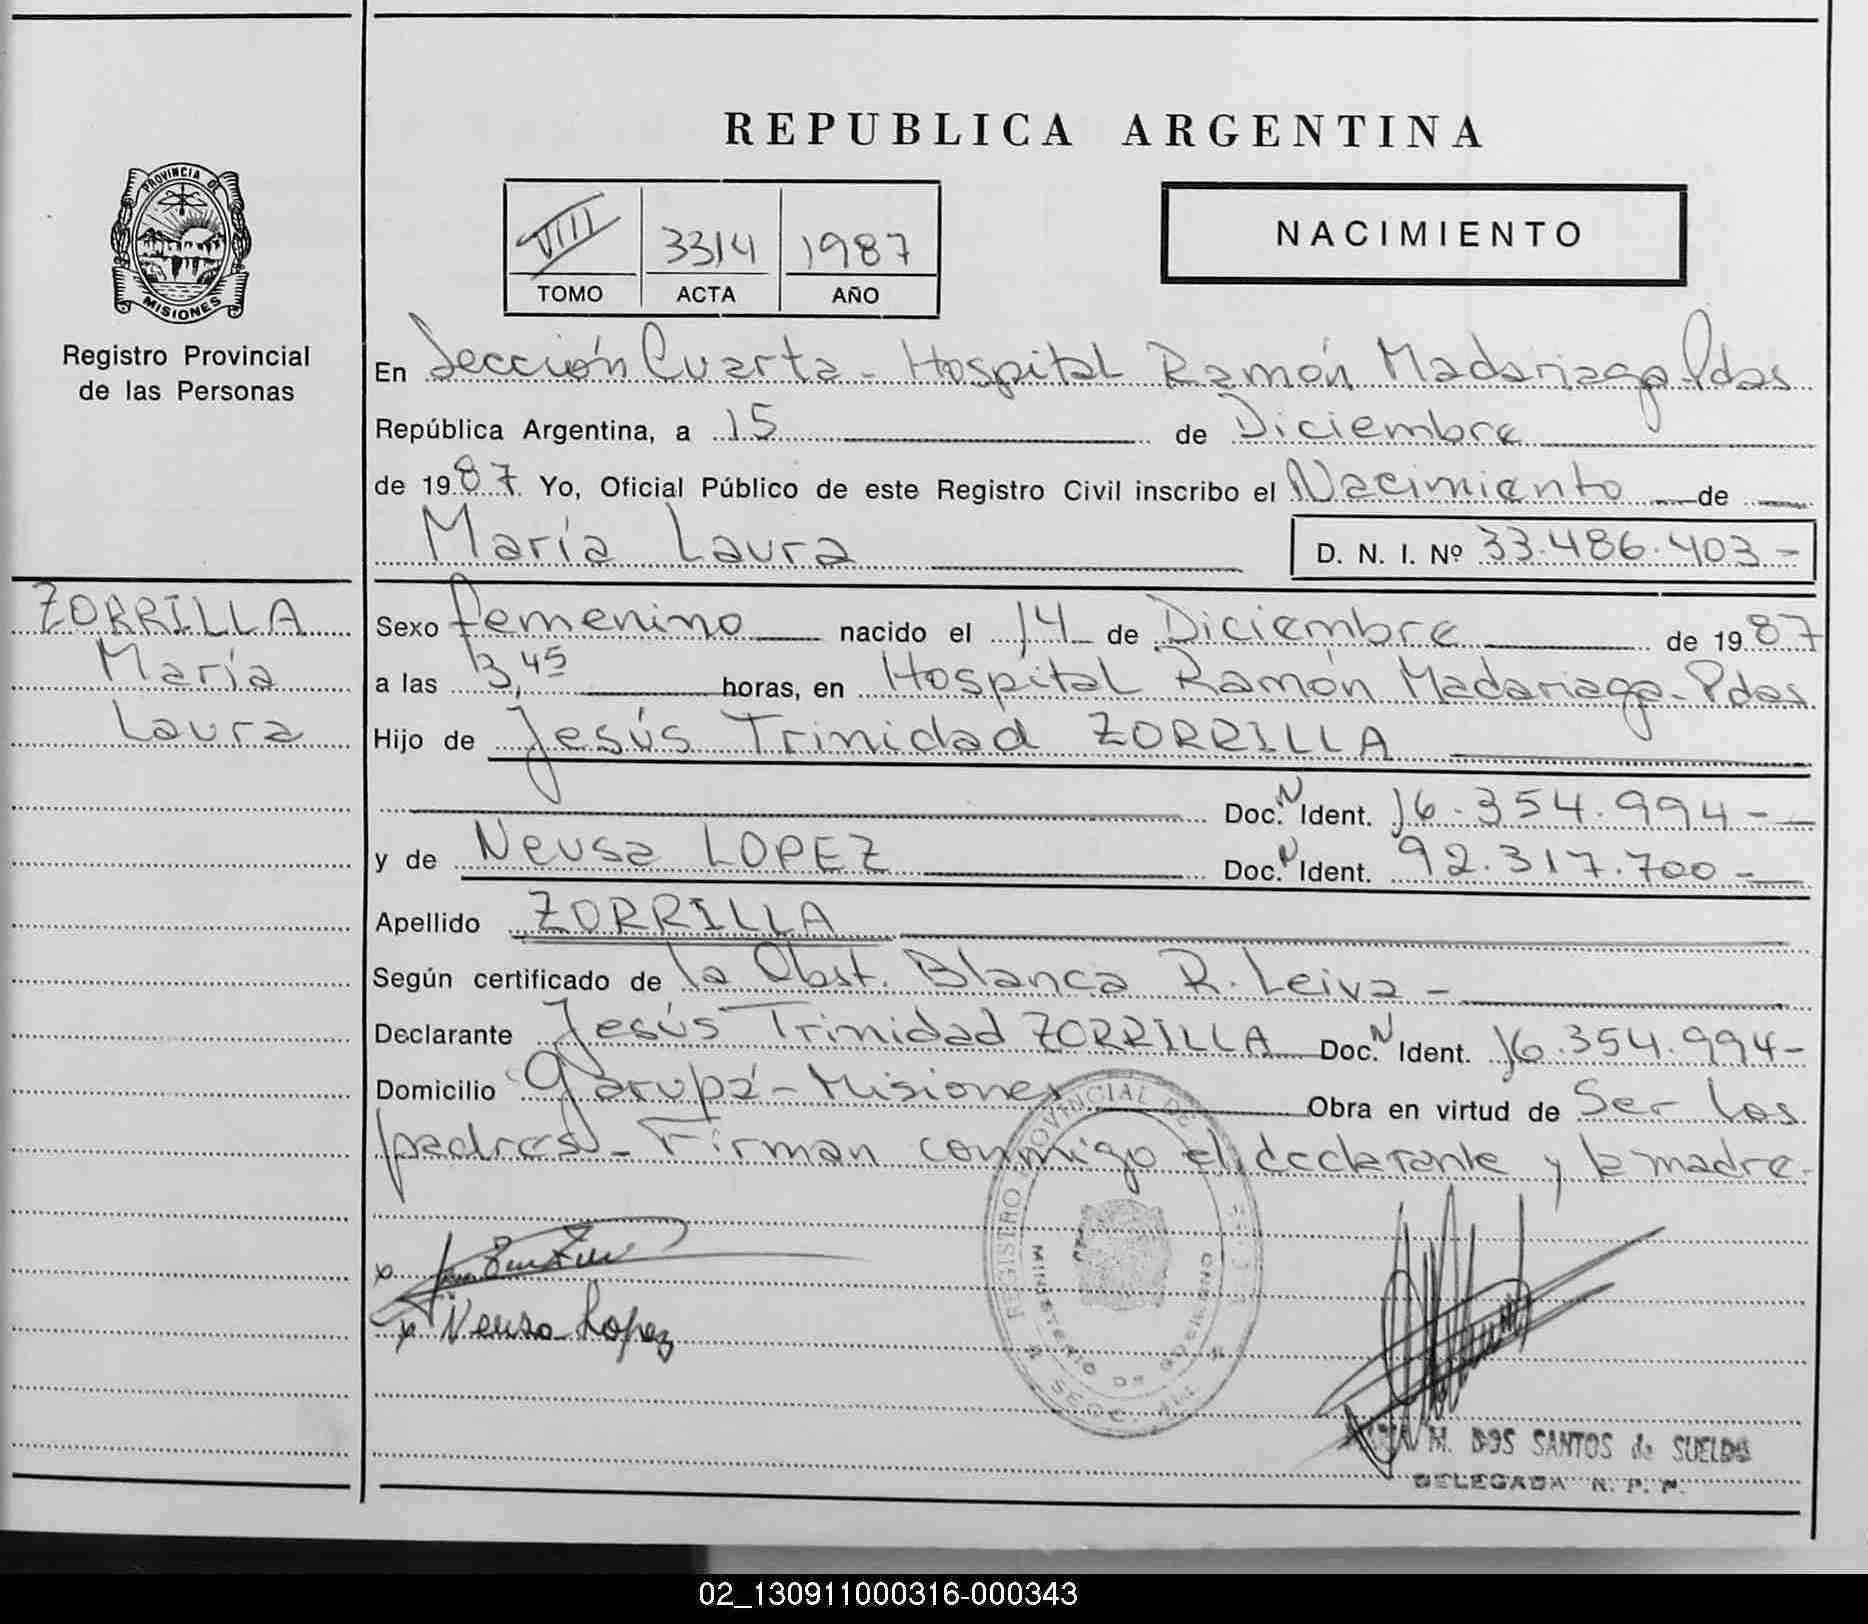 REPUBLICA ARGENTINA
PROVINCIA DE
MISIONES
Registro Provincial
de las Personas
VIII 3314 1987
TOMO ACTA AÑO
NACIMIENTO
En Sección Cuarta - Hospital Ramón Madariaga - Pdas
República Argentina, a 15 de Diciembre
de 1987. Yo, Oficial Público de este Registro Civil inscribo el Nacimiento de
María Laura D. N. I. Nº 33.486.403-
ZORRILLA
María
Laura
Sexo femenino nacido el 14 de Diciembre de 1987
a las 13,45 horas, en Hospital Ramón Madariaga - Pdas
Hijo de Jesús Trinidad ZORRILLA
Doc. N Ident. 16.354.994-
y de Neusa LOPEZ Doc. N Ident. 92.317.700-
Apellido ZORRILLA
Según certificado de la Obst. Blanca R. Leiva -
Declarante Jesús Trinidad ZORRILLA Doc. N Ident. 16.354.994-
Domicilio Garupá - Misiones Obra en virtud de Ser los
padres - Firman conmigo el declarante y la madre.
x
x Neusa Lopez
REGISTRO PROVINCIAL DE
MINISTERIO DE GOBIERNO
SECC.
M. DOS SANTOS de SUELDO
DELEGADA R. P. P.
02_130911000316-000343